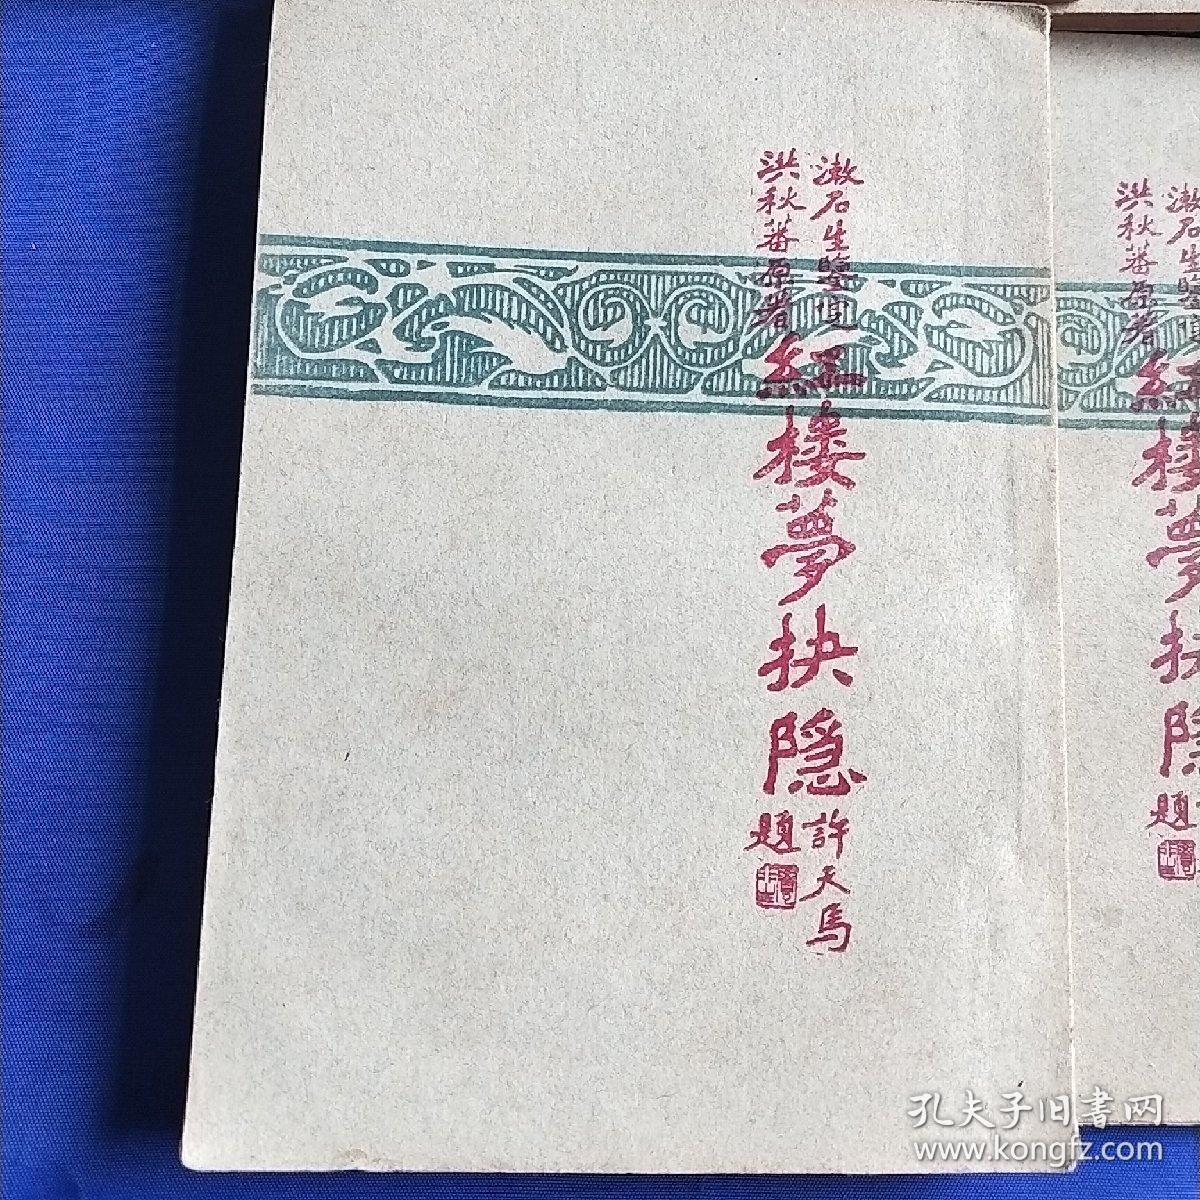 漱石生鑒定
洪秋蕃原著
紅樓夢抉隱
許天馬
題
漱石生鑒
洪秋蕃原著
題
孔夫子旧書网
www.kongfz.com